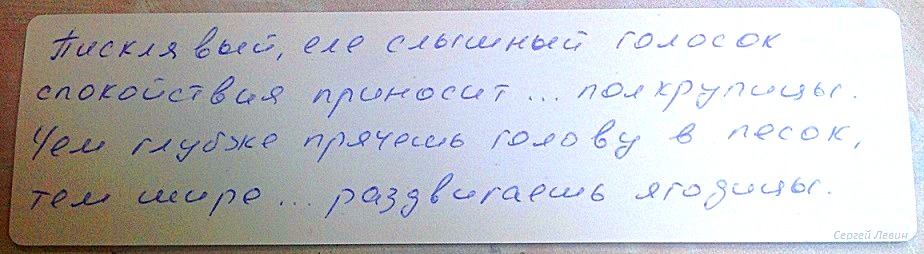 Писклявый, еле слышный голосок
спокойствия приносит... полкрупицы.
Чем глубже прячешь голову в песок,
тем шире... раздвигаешь ягодицы.
Сергей Левин